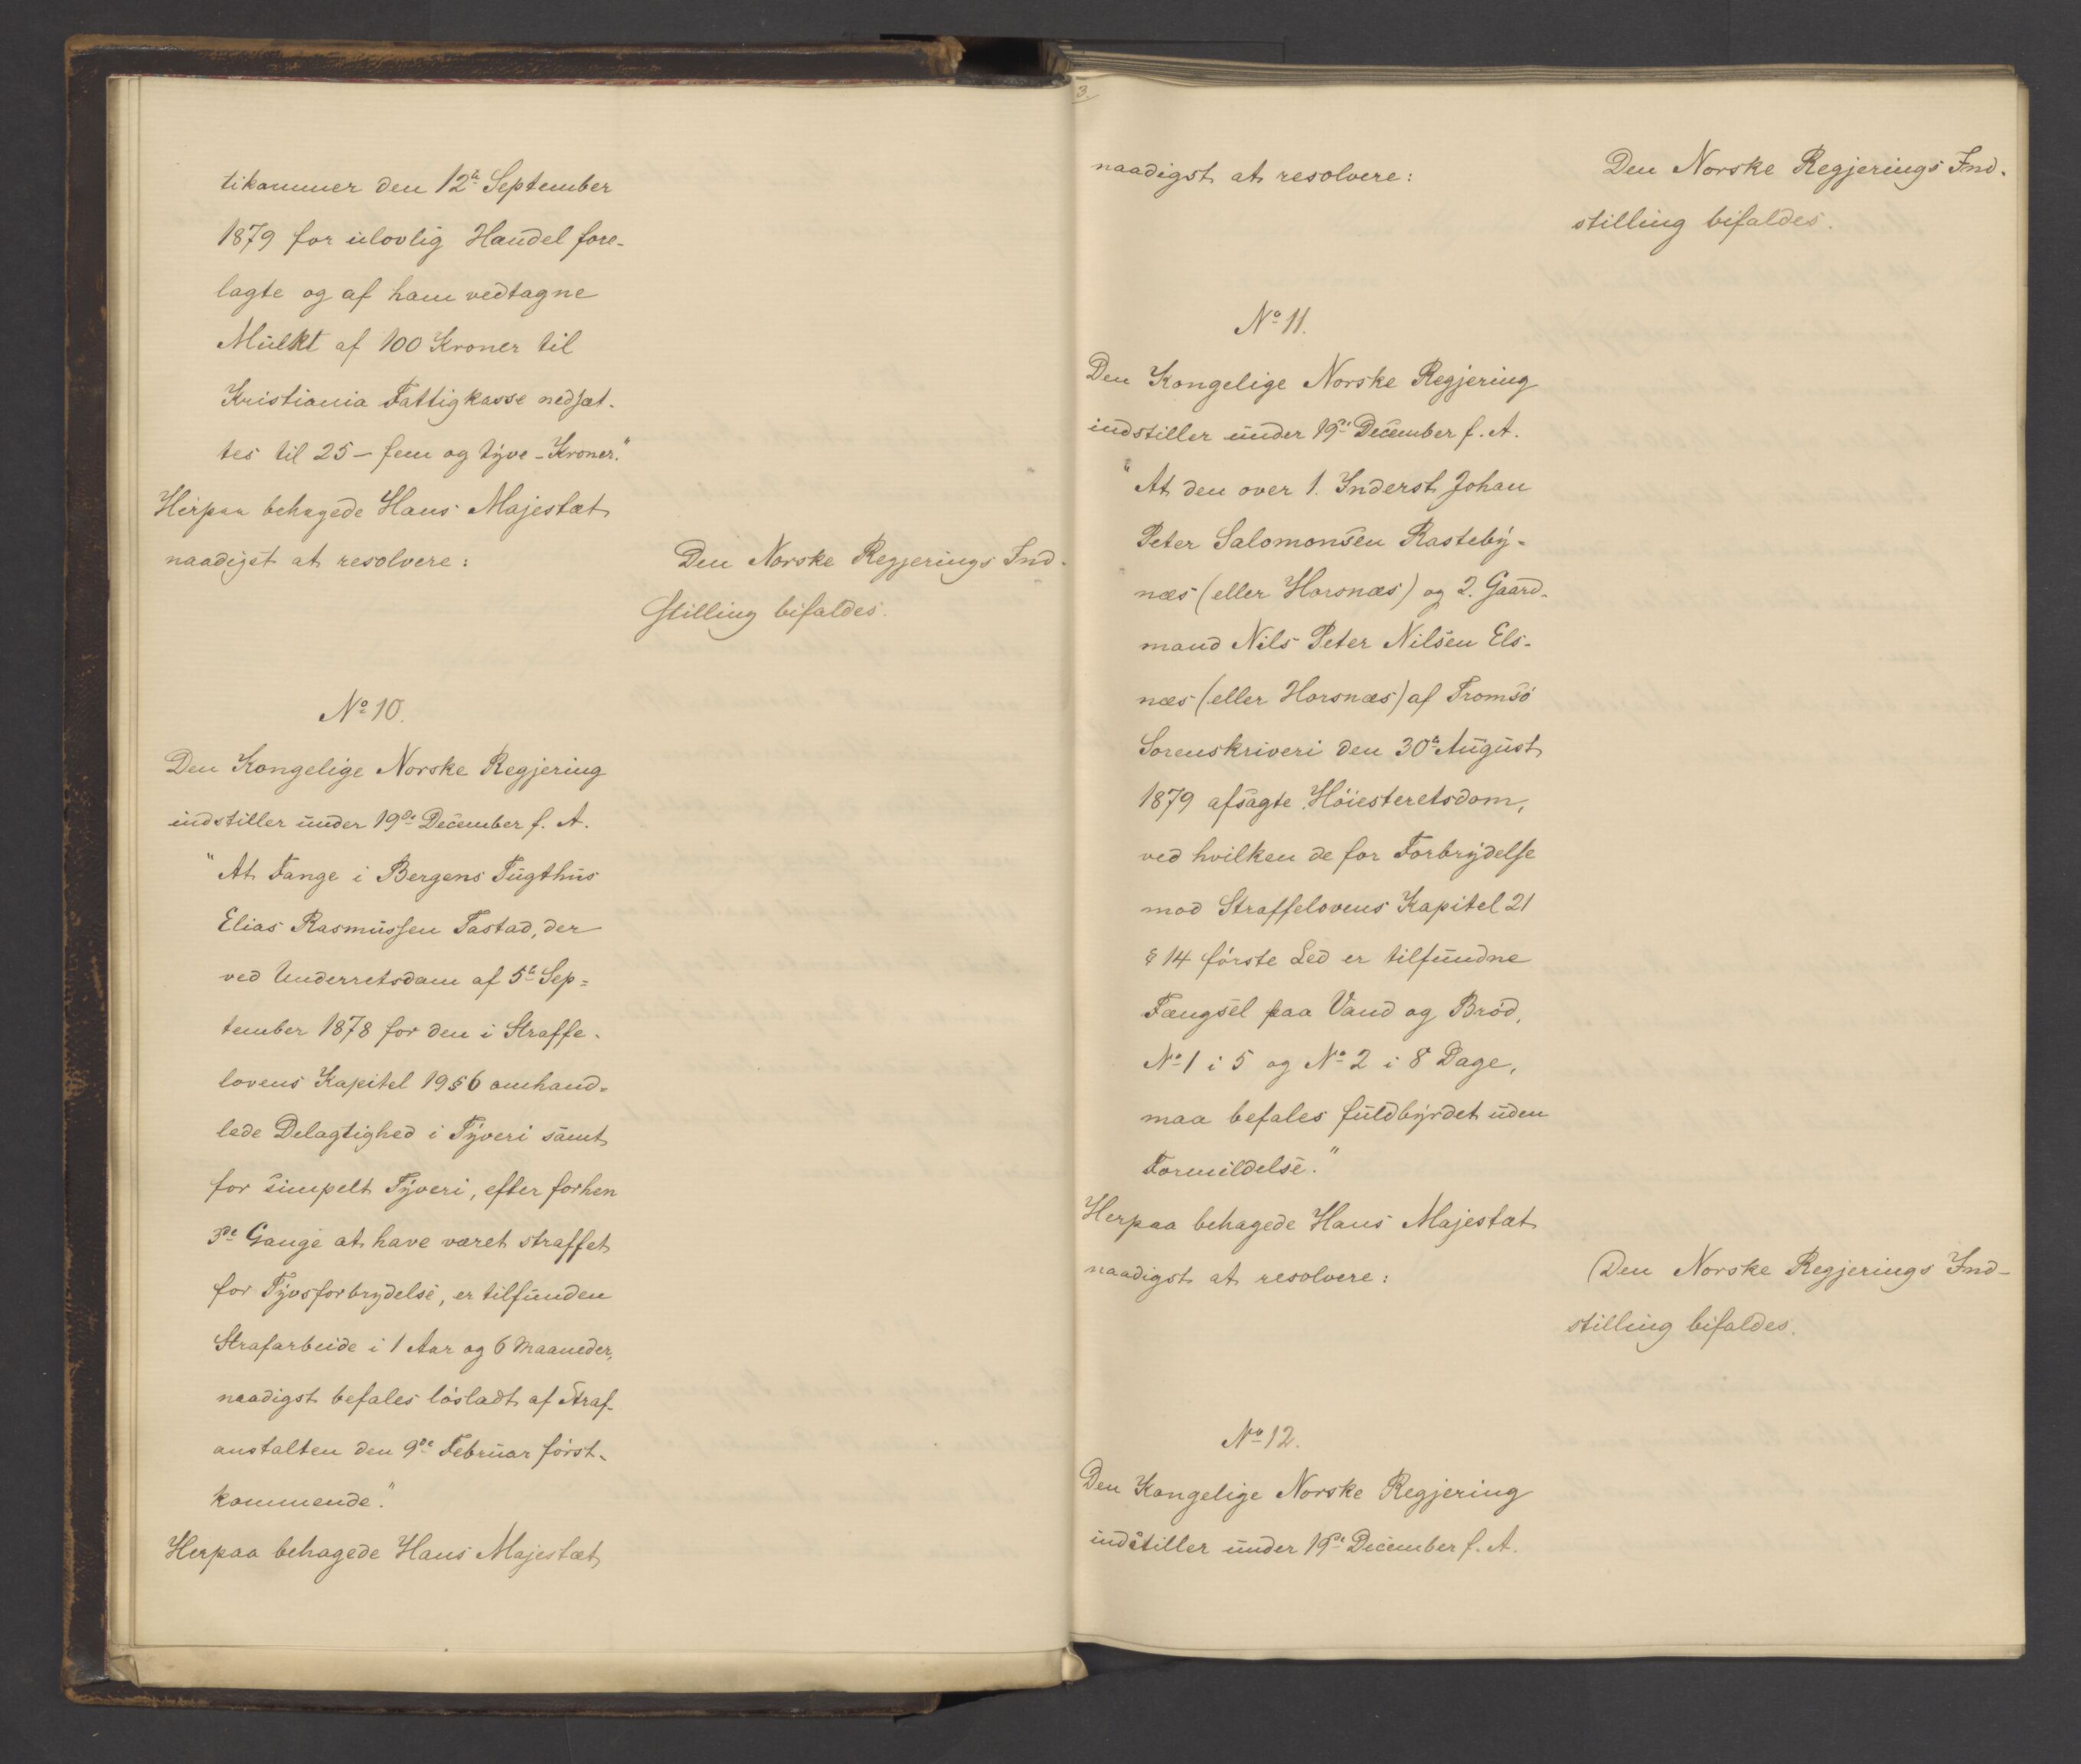 tikammer den 12te September
1879 for ulovlig Handel fore-
lagte og af ham vedtagne
Mulkt af 100 Kroner til
Kristiania Fattigkasse nedsæt-
tes til 25 – fem og tyve – Kroner."
Herpaa behagede Hans Majestæt
naadigst at resolvere:
Den Norske Regjerings Ind-
stilling bifaldes.
No 10.
Den Kongelige Norske Regjering
indstiller under 19de December f. A.
"At Fange i Bergens Tugthus
Elias Rasmussen Tastad, der
ved Underretsdom af 5te Sep=
tember 1878 for den i Straffe-
lovens Kapitel 19 § 6 omhand=
lede Delagtighed i Tyveri samt
for simpelt Tyveri, efter forhen
3de Gange at have været straffet
for Tyvsforbrydelse, er tilfunden
Strafarbeide i 1 Aar og 6 Maaneder,
naadigst befales løsladt af Straf-
anstalten den 9de Februar først-
kommende."
Herpaa behagede Hans Majestæt
3.
naadigst at resolvere:
Den Norske Regjerings Ind-
stilling bifaldes.
No 11.
Den Kongelige Norske Regjering
indstiller under 19de December f. A.
"At den over 1. Inderst Johan
Peter Salomonsen Rasteby-
næs (eller Horsnæs) og 2. Gaard-
mand Nils Peter Nilsen Els-
næs (eller Horsnæs) af Tromsø
Sorenskriveri den 30te August
1879 afsagte Høiesteretsdom,
ved hvilken de for Forbrydelse
mod Straffelovens Kapitel 21
§ 14 første Led er tilfundne
Fængsel paa Vand og Brød,
No 1 i 5 og No 2 i 8 Dage,
maa befales fuldbyrdet uden
Formildelse."
Herpaa behagede Hans Majestæt
naadigst at resolvere:
Den Norske Regjerings Ind-
stilling bifaldes.
No 12.
Den Kongelige Norske Regjering
indstiller under 19de December f. A.